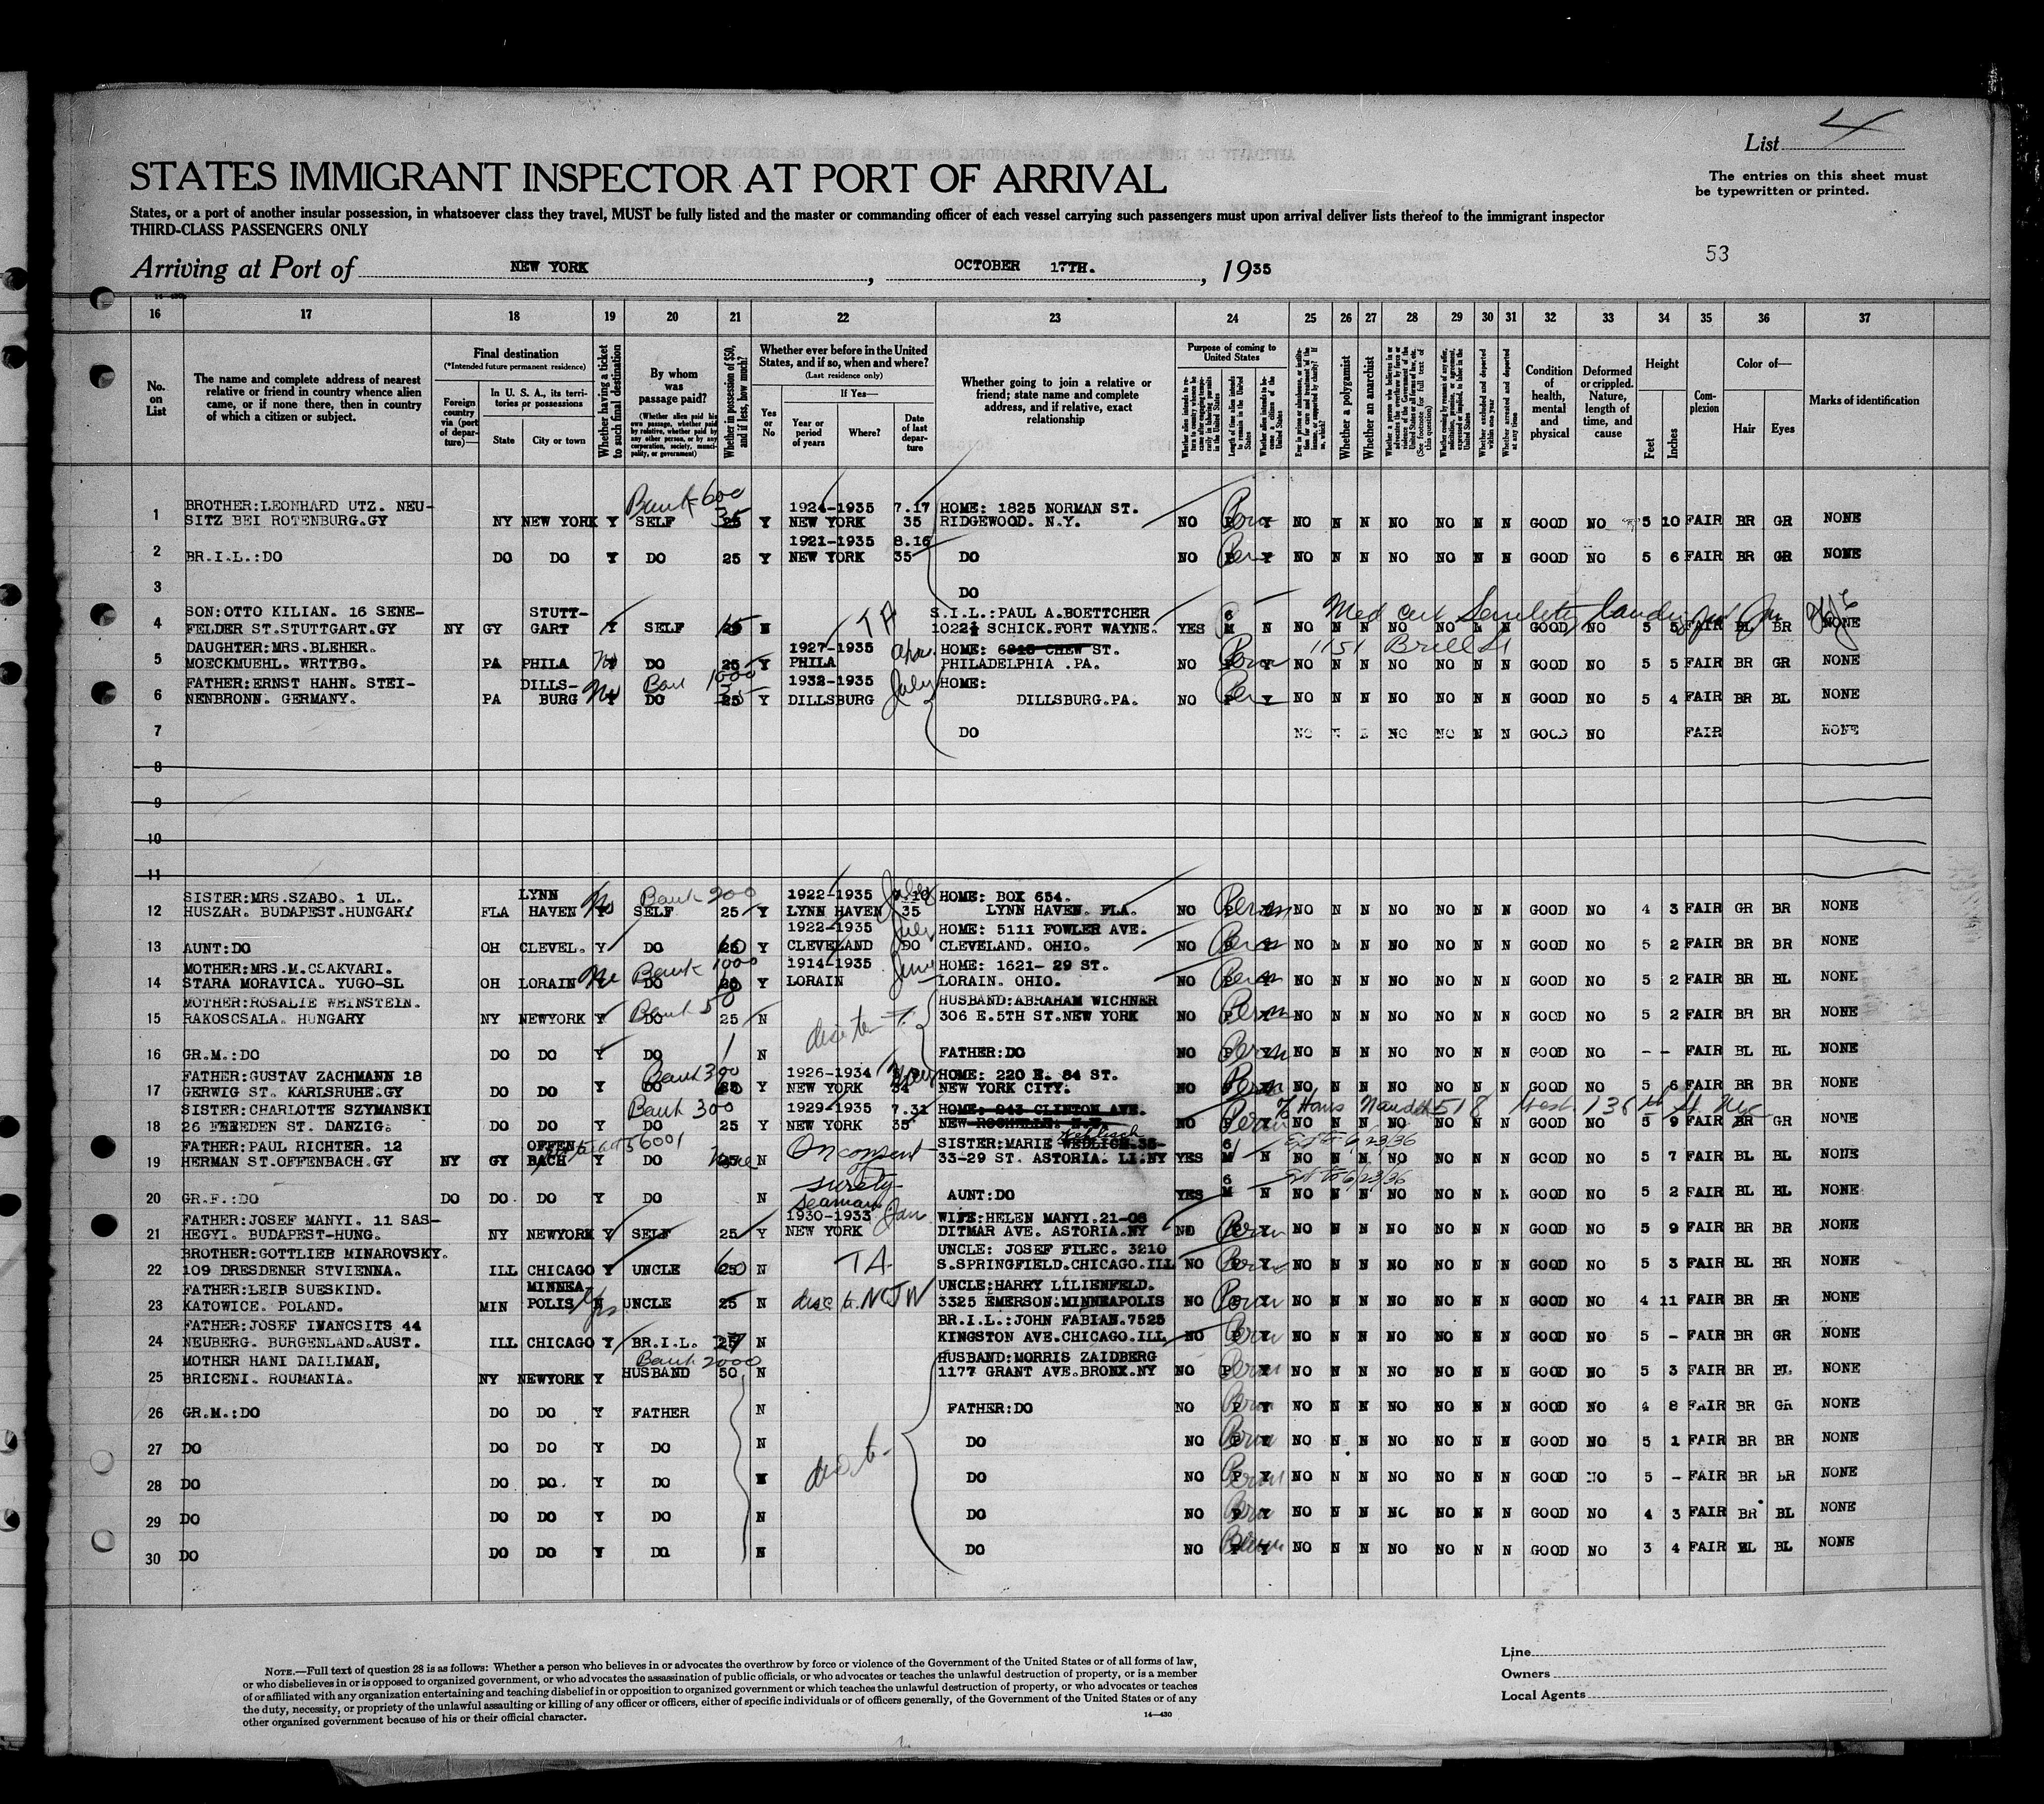 List 4
STATES IMMIGRANT INSPECTOR AT PORT OF ARRIVAL
The entries on this sheet must
be typewritten or printed.
States, or a port of another insular possession, in whatsoever class they travel, MUST be fully listed and the master or commanding officer of each vessel carrying such passengers must upon arrival deliver lists thereof to the immigrant inspector
THIRD-CLASS PASSENGERS ONLY
53
Arriving at Port of NEW YORK, OCTOBER 17TH., 1935
16 17 18 19 20 21 22 23 24 25 26 27 28 29 30 31 32 33 34 35 36 37
No. on List
The name and complete address of nearest relative or friend in country whence alien came, or if none there, then in country of which a citizen or subject.
Final destination (*Intended future permanent residence)
Foreign country via (port of departure)—
In U. S. A., its territories or possessions
State City or town
Whether having a ticket to such final destination
By whom was passage paid?
(Whether alien paid his own passage, whether paid by relative, whether paid by any other person, or by any corporation, society, municipality, or government)
Whether in possession of $50, and if less, how much?
Whether ever before in the United States, and if so, when and where?
(Last residence only)
If Yes—
Yes or No
Year or period of years
Where?
Date of last departure
Whether going to join a relative or friend; state name and complete address, and if relative, exact relationship
Purpose of coming to United States
Whether a polygamist
Whether an anarchist
Condition of health, mental and physical
Deformed or crippled. Nature, length of time, and cause
Height
Feet Inches
Complexion
Color of—
Hair Eyes
Marks of identification
Bank 600
BROTHER:LEONHARD UTZ. NEU- 1924-1935 7.17 HOME: 1825 NORMAN ST.
1 SITZ BEI ROTENBURG.GY NY NEW YORK Y SELF 25 Y NEW YORK 35 RIDGEWOOD. N.Y. NO P Y NO N N NO NO N N GOOD NO 5 10 FAIR BR GR NONE
1921-1935 8.16
2 BR.I.L.:DO DO DO Y DO 25 Y NEW YORK 35 DO NO P Y NO N N NO NO N N GOOD NO 5 6 FAIR BR GR NONE
3 DO
SON:OTTO KILIAN. 16 SENE- STUTT- TA S.I.L.:PAUL A.BOETTCHER 6 Med cert Senility
4 FELDER ST.STUTTGART.GY NY GY GART Y SELF N 1022½ SCHICK.FORT WAYNE. YES M N NO N N NO NO N N GOOD NO 5 5 FAIR BL BR NONE
DAUGHTER:MRS.BLEHER. 1927-1935 HOME: CHEW ST. 1151 Brill St
5 MOECKMUEHL. WRTTBG. PA PHILA No DO 25 Y PHILA PHILADELPHIA .PA. NO P Y NO N N NO NO N N GOOD NO 5 5 FAIR BR GR NONE
FATHER:ERNST HAHN. STEI- DILLS- No 1000 1932-1935 July HOME:
6 NENBRONN. GERMANY. PA BURG DO 25 Y DILLSBURG DILLSBURG.PA. NO P Y NO N N NO NO N N GOOD NO 5 4 FAIR BR BL NONE
7 DO NO N N NO NO N N GOOD NO FAIR NONE
8
9
10
11
SISTER:MRS.SZABO. 1 UL. LYNN No Bank 200 1922-1935 July HOME: BOX 654.
12 HUSZAR. BUDAPEST.HUNGARY FLA HAVEN Y SELF 25 Y LYNN HAVEN 35 LYNN HAVEN. FLA. NO P NO N N NO NO N N GOOD NO 4 3 FAIR GR BR NONE
1922-1935 July HOME: 5111 FOWLER AVE.
13 AUNT:DO OH CLEVEL. Y DO 25 Y CLEVELAND DO CLEVELAND. OHIO. NO P Y NO N N NO NO N N GOOD NO 5 2 FAIR BR BR NONE
MOTHER:MRS.M.CSAKVARI. Bank 1000 1914-1935 June HOME: 1621- 29 ST.
14 STARA MORAVICA. YUGO-SL OH LORAIN No DO Y LORAIN LORAIN. OHIO. NO P Y NO N N NO NO N N GOOD NO 5 2 FAIR BR BL NONE
MOTHER:ROSALIE WEINSTEIN. Bank 50 HUSBAND:ABRAHAM WICHNER
15 RAKOSCSALA. HUNGARY NY NEWYORK Y DO 25 N 306 E.5TH ST.NEW YORK NO P Y NO N N NO NO N N GOOD NO 5 2 FAIR BR BR NONE
16 GR.M.:DO DO DO Y DO 1 N FATHER:DO NO P Y NO N N NO NO N N GOOD NO - - FAIR BL BL NONE
FATHER:GUSTAV ZACHMANN 18 Bank 300 1926-1934 HOME: 220 E. 84 ST.
17 GERWIG ST. KARLSRUHE.GY DO DO Y DO Y NEW YORK 34 NEW YORK CITY. NO P Y NO N N NO NO N N GOOD NO 5 6 FAIR BR BR NONE
SISTER:CHARLOTTE SZYMANSKI Bank 300 1929-1935 7.31 HOME: 243 CLINTON AVE. 518 West 136th St NYC
18 26 FEEEDEN ST. DANZIG. DO DO Y DO 25 Y NEW YORK 35 NEW ROCHELLE. N.Y. NO P Y NO N N NO NO N N GOOD NO 5 9 FAIR BR GR NONE
FATHER:PAUL RICHTER. 12 OFFEN On consent SISTER:MARIE WEDLICH.35- 6 Ext to 6/23/36
19 HERMAN ST.OFFENBACH.GY NY GY BACH Y DO None N of 33-29 ST. ASTORIA. LI.NY YES M N NO N N NO NO N N GOOD NO 5 7 FAIR BL BL NONE
surety 6 Ext to 6/23/36
20 GR.F.:DO DO DO DO Y DO N AUNT:DO YES M N NO N N NO NO N N GOOD NO 5 2 FAIR BL BL NONE
seaman
FATHER:JOSEF MANYI. 11 SAS- 1930-1933 Jan WIFE:HELEN MANYI.21-08
21 HEGYI. BUDAPEST-HUNG. NY NEWYORK Y SELF 25 Y NEW YORK DITMAR AVE. ASTORIA.NY NO P Y NO N N NO NO N N GOOD NO 5 9 FAIR BR BR NONE
BROTHER:GOTTLIEB MINAROVSKY. UNCLE: JOSEF FILEC. 3210
22 109 DRESDENER STVIENNA. ILL CHICAGO Y UNCLE 60 N TA S.SPRINGFIELD.CHICAGO.ILL NO P Y NO N N NO NO N N GOOD NO 5 3 FAIR BL BR NONE
FATHER:LEIB SUESKIND. MINNEA- UNCLE:HARRY LILIENFELD.
23 KATOWICE. POLAND. MIN POLIS N yes UNCLE 25 N NCJW 3325 EMERSON.MINNEAPOLIS NO P Y NO N N NO NO N N GOOD NO 4 11 FAIR BR BR NONE
FATHER:JOSEF IVANCSITS 44 BR.I.L.:JOHN FABIAN.7525
24 NEUBERG. BURGENLAND.AUST. ILL CHICAGO Y BR.I.L. N KINGSTON AVE.CHICAGO.ILL NO P Y NO N N NO NO N N GOOD NO 5 - FAIR BR GR NONE
MOTHER HANI DAILIMAN, Bank 2000 HUSBAND:MORRIS ZAIDBERG
25 BRICENI. ROUMANIA. NY NEWYORK Y HUSBAND 50 N 1177 GRANT AVE.BRONX.NY NO P Y NO N N NO NO N N GOOD NO 5 3 FAIR BR BL NONE
26 GR.M.:DO DO DO Y FATHER N FATHER:DO NO P Y NO N N NO NO N N GOOD NO 4 8 FAIR BR GR NONE
27 DO DO DO Y DO N DO NO P Y NO N N NO NO N N GOOD NO 5 1 FAIR BR BR NONE
28 DO DO DO Y DO N DO NO P Y NO N N NO NO N N GOOD NO 5 - FAIR BR BR NONE
29 DO DO DO Y DO N DO NO P Y NO N N NO NO N N GOOD NO 4 3 FAIR BR BL NONE
30 DO DO DO Y DO N DO NO P Y NO N N NO NO N N GOOD NO 3 4 FAIR BL BL NONE
NOTE.—Full text of question 28 is as follows: Whether a person who believes in or advocates the overthrow by force or violence of the Government of the United States or of all forms of law,
or who disbelieves in or is opposed to organized government, or who advocates the assassination of public officials, or who advocates or teaches the unlawful destruction of property, or is a member
of or affiliated with any organization entertaining and teaching disbelief in or opposition to organized government or which teaches the unlawful destruction of property, or who advocates or teaches
the duty, necessity, or propriety of the unlawful assaulting or killing of any officer or officers, either of specific individuals or of officers generally, of the Government of the United States or of any
other organized government because of his or their official character.
14—430
Line
Owners
Local Agents